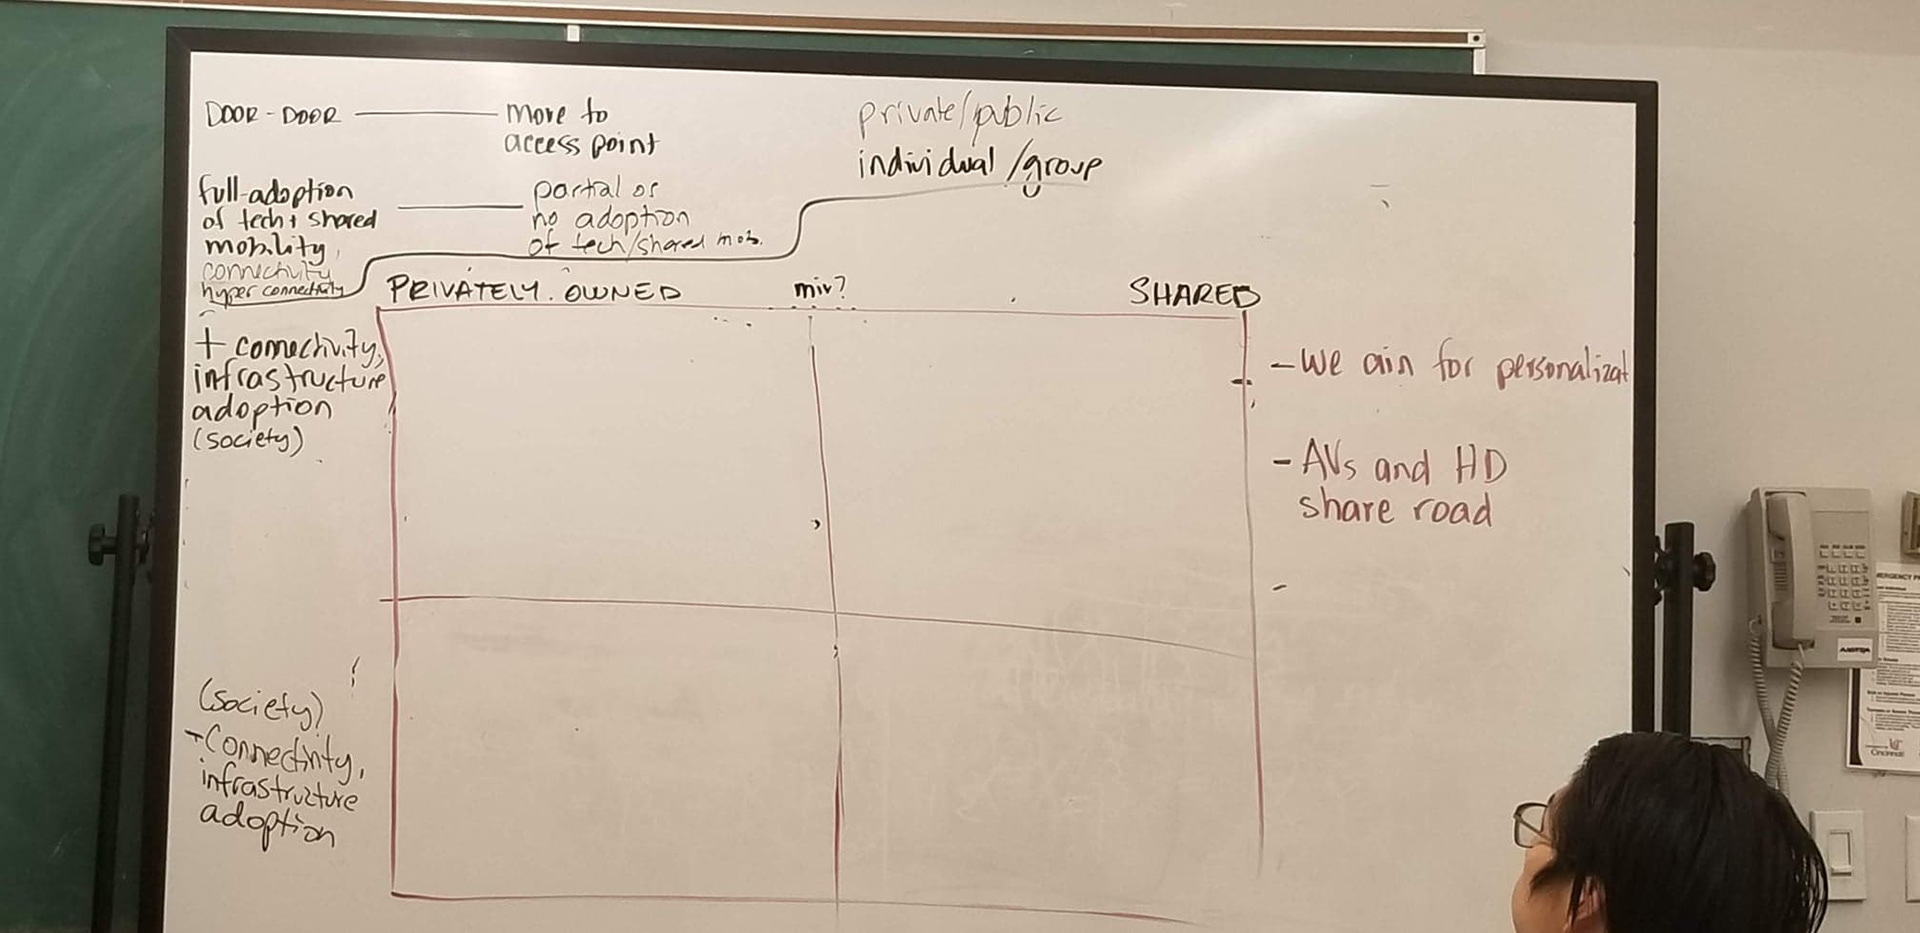 DOOR - DOOR
move to
access point
private/public
individual/group
full-adoption
of tech + shared
mobility,
connectivity
hyper connectivity
partial or
no adoption
of tech/shared mob.
PRIVATELY OWNED
SHARED
+ connectivity,
infrastructure
adoption
(society)
- We aim for personalizat
- AVs and HD
share road
-
(society)
- Connectivity,
infrastructure
adoption
AASTRA
Cincinnati